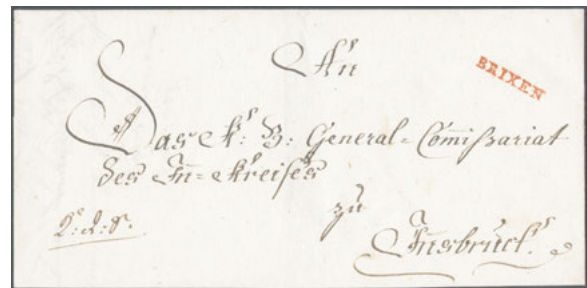 An
BRIXEN
Das K: B: General-Commißariat
des Inn-Kreises
zu
Innsbruck.